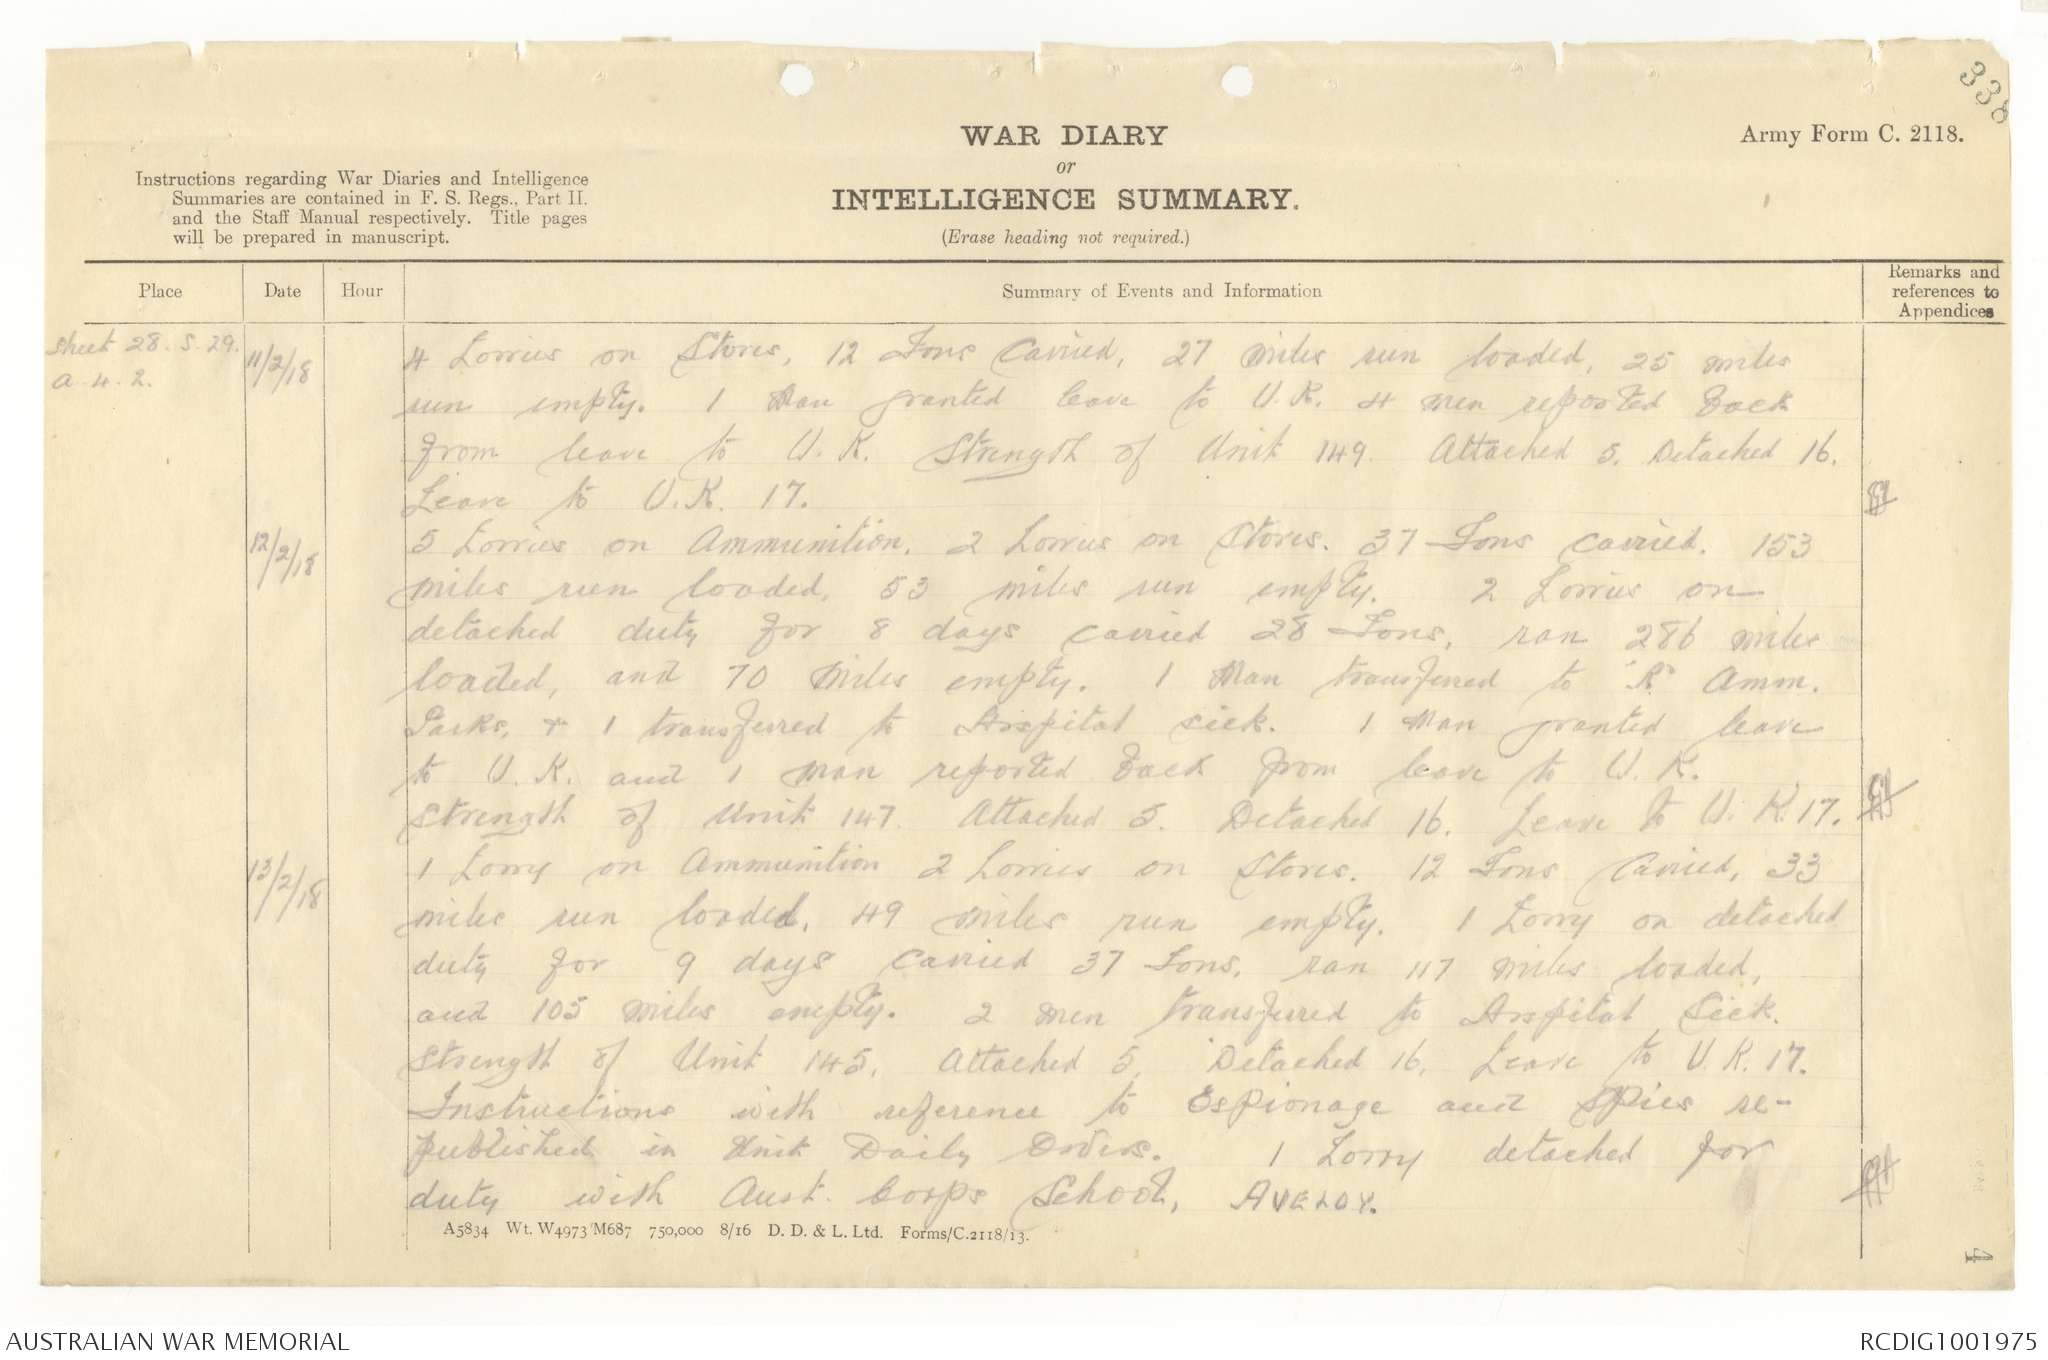 338
WAR DIARY
or
INTELLIGENCE SUMMARY.
(Erase heading not required.)
Army Form C. 2118.
Instructions regarding War Diaries and Intelligence
Summaries are contained in F. S. Regs., Part II.
and the Staff Manual respectively. Title pages
will be prepared in manuscript.
Place
Date
Hour
Summary of Events and Information
Remarks and
references to
Appendices
Sheet 28. S. 29.
a. 4. 2.
11/2/18
4 Lorries on Stores, 12 Tons Carried, 27 miles run loaded, 25 miles
run empty. 1 Man granted leave to U.K. 4 men reported back
from leave to U.K. Strength of Unit 149. Attached 5. Detached 16.
Leave to U.K. 17.
12/2/18
5 Lorries on Ammunition. 2 Lorries on Stores. 37 Tons carried. 153
miles run loaded, 53 miles run empty. 2 Lorries on
detached duty for 8 days carried 28 Tons, ran 286 miles
loaded, and 70 miles empty. 1 Man transferred to "R" Amm.
Parks, + 1 transferred to Hospital sick. 1 Man granted leave
to U.K. and 1 man reported back from leave to U.K.
Strength of Unit 147. Attached 5. Detached 16. Leave to U.K. 17.
13/2/18
1 Lorry on Ammunition 2 Lorries on Stores. 12 Tons Carried, 33
miles run loaded, 49 miles run empty. 1 Lorry on detached
duty for 9 days carried 37 Tons, ran 117 miles loaded,
and 105 miles empty. 2 men transferred to Hospital Sick.
Strength of Unit 145. Attached 5. Detached 16. Leave to U.K. 17.
Instructions with reference to Espionage and Spies re-
published in Unit Daily Orders. 1 Lorry detached for
duty with Aust. Corps School, AVELOY.
A5834 Wt. W4973/M687 750,000 8/16 D. D. & L. Ltd. Forms/C.2118/13.
4
AUSTRALIAN WAR MEMORIAL
RCDIG1001975